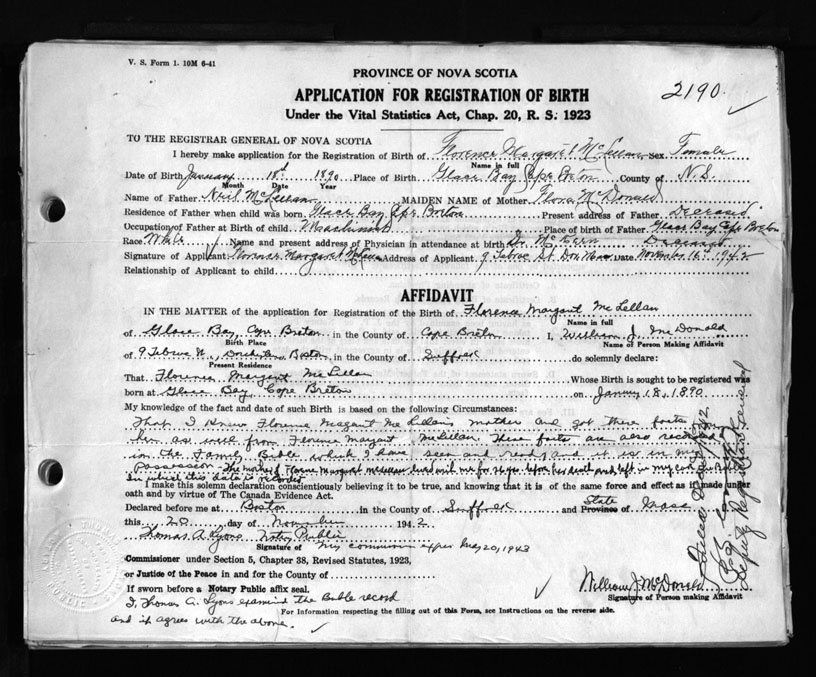 V. S. Form 1. 10M 6-41
PROVINCE OF NOVA SCOTIA
APPLICATION FOR REGISTRATION OF BIRTH
2190
Under the Vital Statistics Act, Chap. 20, R. S. 1923
TO THE REGISTRAR GENERAL OF NOVA SCOTIA
I hereby make application for the Registration of Birth of Florence Margaret McLellan Sex Female
Name in full
Date of Birth January 18 1890 Place of Birth Glace Bay Cape Breton County of N.S.
Month Date Year
Name of Father Neil McLellan MAIDEN NAME of Mother Flora McDonald
Residence of Father when child was born Glace Bay Cape Breton Present address of Father Deceased
Occupation of Father at Birth of child Machinist Place of birth of Father Glace Bay Cape Breton
Race White Name and present address of Physician in attendance at birth Dr. Deceased
Signature of Applicant Florence Margaret McLellan Address of Applicant 9 St. Date November 16 1942
Relationship of Applicant to child
AFFIDAVIT
IN THE MATTER of the application for Registration of the Birth of Florence Margaret McLellan
Name in full
of Glace Bay, Cape Breton in the County of Cape Breton I, William J. McDonald
Birth Place Name of Person Making Affidavit
of 9 St., Boston in the County of Suffolk do solemnly declare:
Present Residence
That Florence Margaret McLellan Whose Birth is sought to be registered was
born at Glace Bay, Cape Breton on January 18, 1890
My knowledge of the fact and date of such Birth is based on the following Circumstances:
That I knew Florence Magaret McLellan's mother and got these facts
from her as well from Florence Margaret McLellan. These facts are also recorded
in the Family Bible which I have seen and read and it is in my
possession - The mother of Florence Margaret McLellan lived with me for before her death and left in my
in which this date is recorded
I make this solemn declaration conscientiously believing it to be true, and knowing that it is of the same force and effect as if made under
oath and by virtue of The Canada Evidence Act.
Declared before me at Boston in the County of Suffolk and State Province of Mass
this 20 day of November 1942
Thomas A. Lyons Notary Public
Signature of My commission expires 20, 1943
Commissioner under Section 5, Chapter 38, Revised Statutes, 1923,
or Justice of the Peace in and for the County of
If sworn before a Notary Public affix seal. William J. McDonald
Signature of Person making Affidavit
I, Thomas A. Lyons examined the Bible record
For Information respecting the filling out of this Form, see Instructions on the reverse side.
and it agrees with the above.
Deputy Registrar General